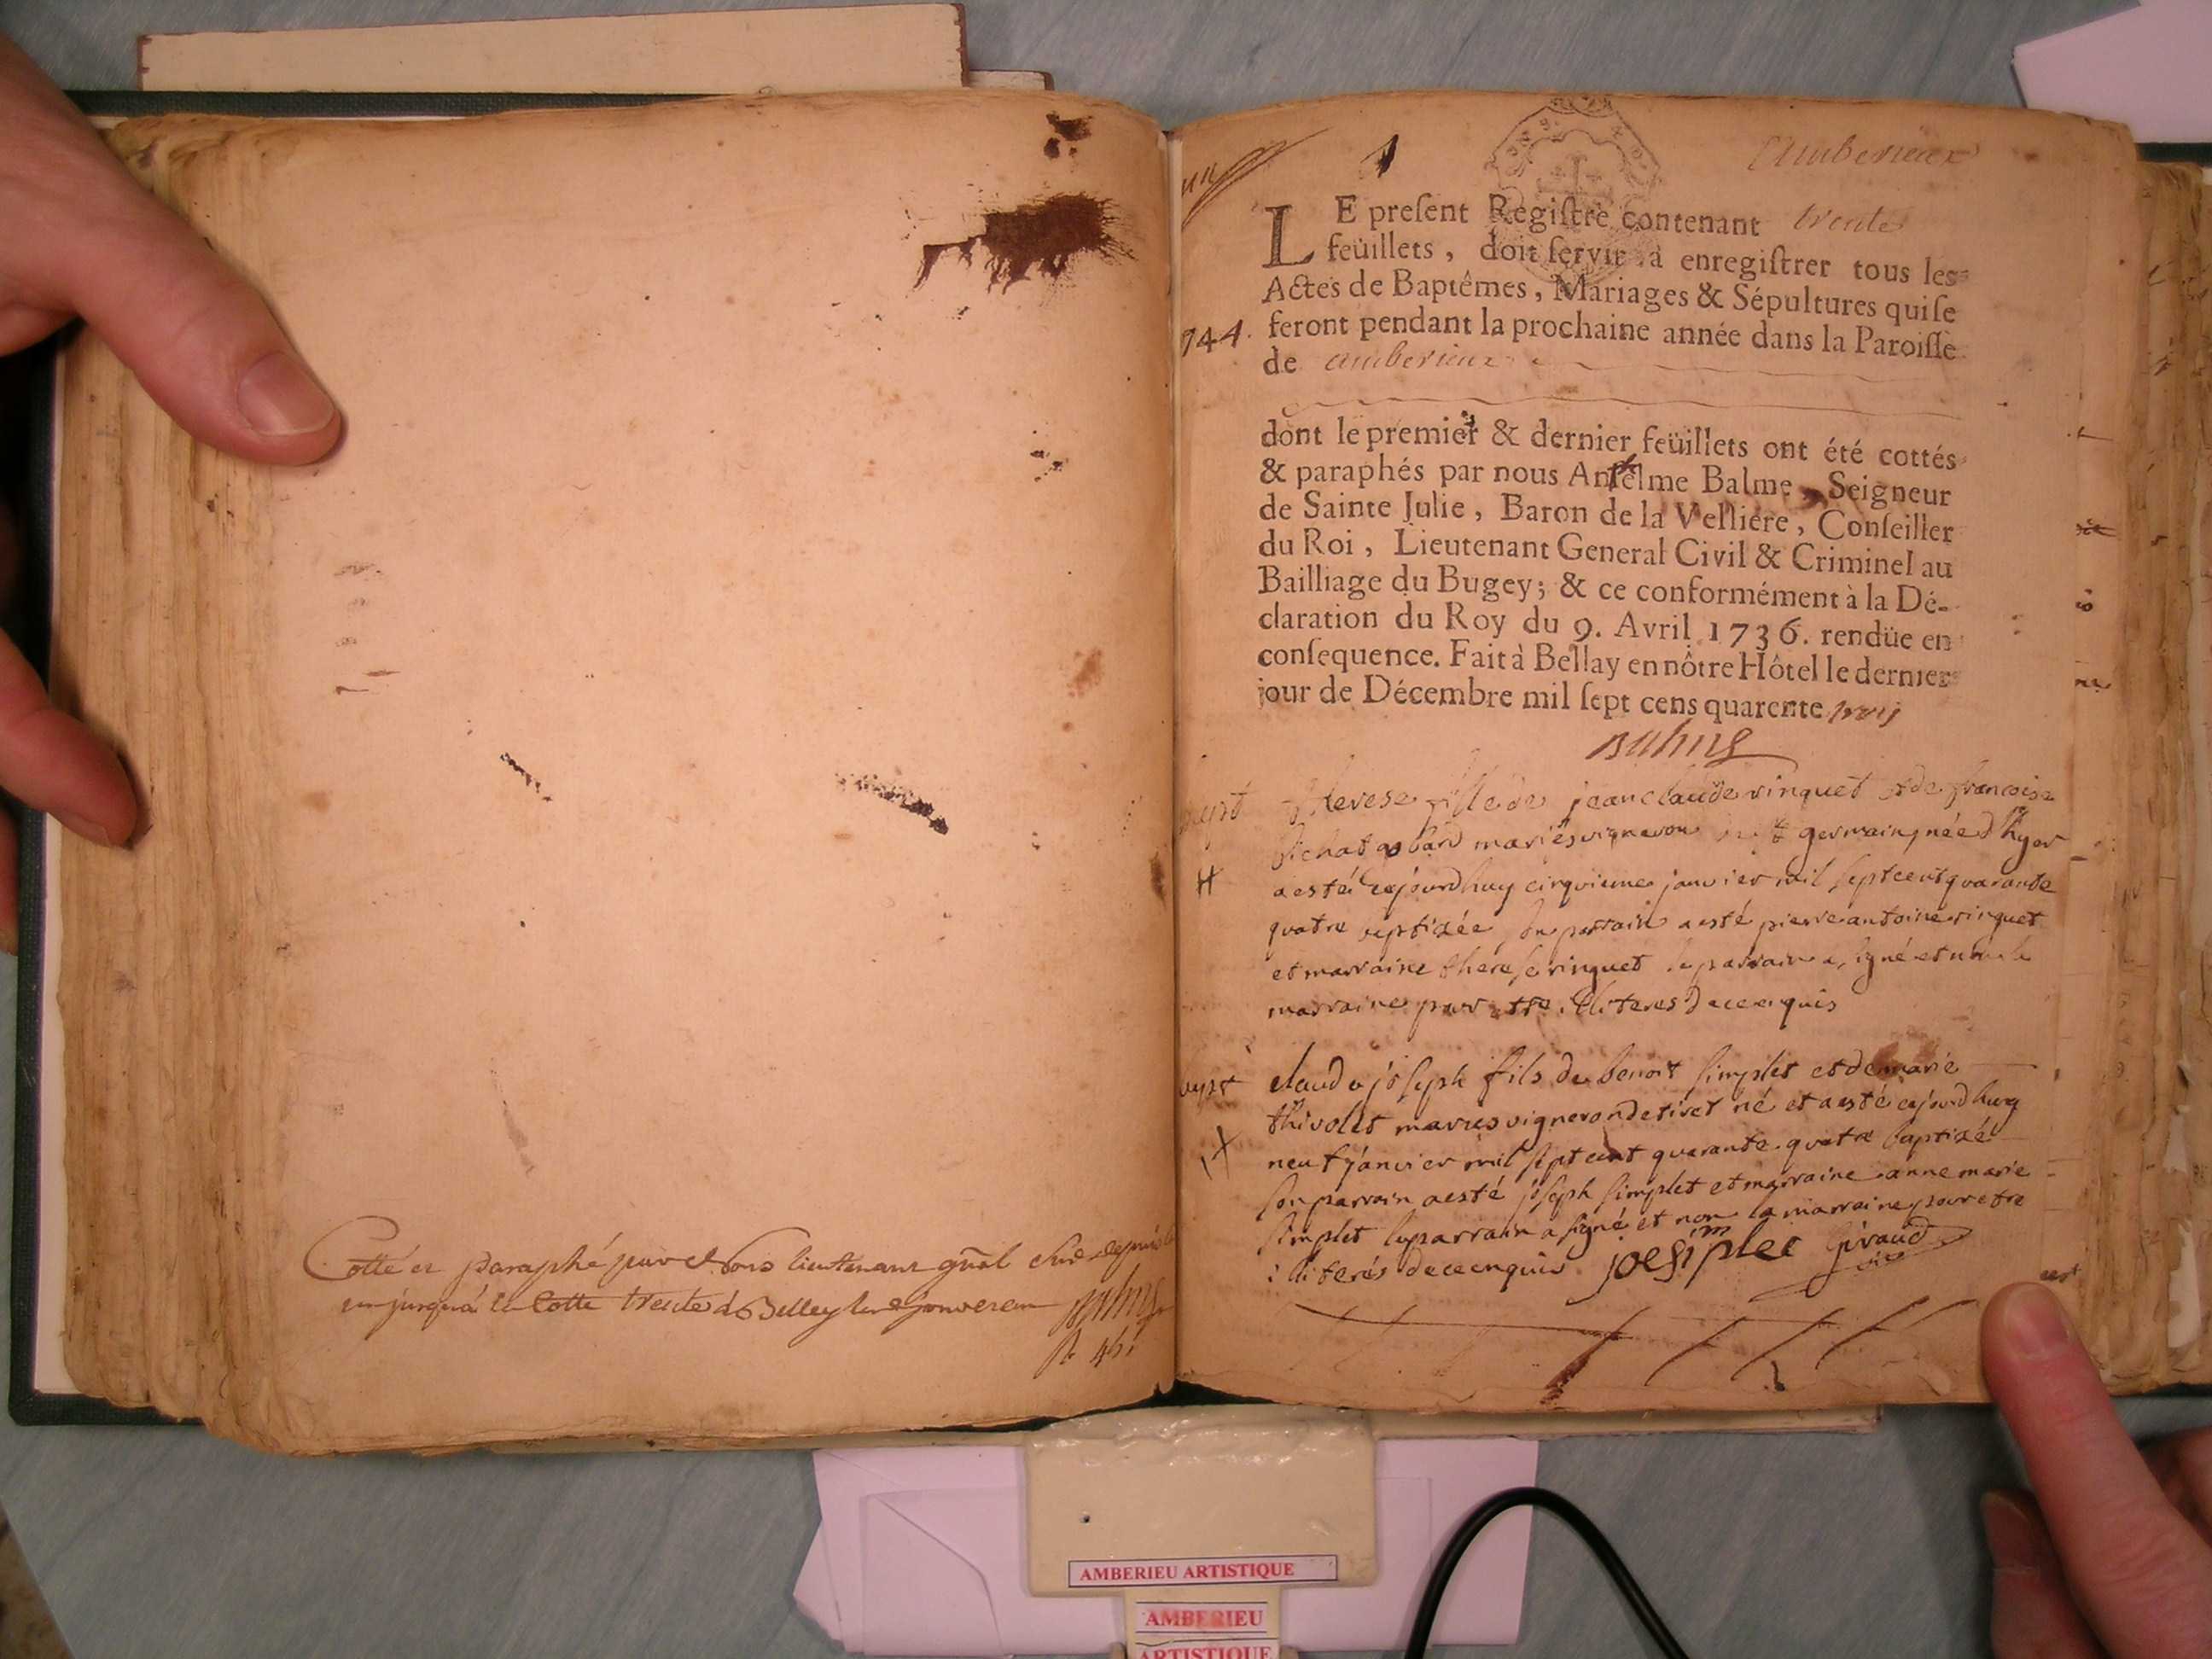 Cotté et paraphé par Nous lieutenant gñal
jusqu'à la Cotte trente à Belley
Balme
un
1
Amberieux
LE preſent Regiſtre contenant trente
feüillets, doit ſervir à enregiſtrer tous les
Actes de Baptêmes, Mariages & Sépultures qui ſe
744. feront pendant la prochaine année dans la Paroiſſe
de amberieux
dont le premier & dernier feüillets ont été cottés
& paraphés par nous Anſelme Balme, Seigneur
de Sainte Julie, Baron de la Velliére, Conſeiller
du Roi, Lieutenant General Civil & Criminel au
Bailliage du Bugey; & ce conformément à la Dé-
claration du Roy du 9. Avril 1736. rendüe en
conſequence. Fait à Bellay en nôtre Hôtel le dernier
jour de Décembre mil ſept cens quarente trois
Balme
bapt therese fille de jean claude ringuet et de francoise
mariés vigneron germain, née d'hyer
a esté cejourdhuy cinquieme janvier mil sept cent quarante
quatre baptizée son parrain a esté pierre antoine ringuet
et marraine therese ringuet le parrain a signé et non la
marraine pour etre illiteres de ce enquis
bapt claude joseph fils de benoit simplet et de marie
thivolet mariés vigneron de tiret né et a esté cejourdhuy
neuf janvier mil sept cent quarante quatre baptizé
son parrain a esté joseph simplet et marraine anne marie
simplet le parrain a signé et non la marraine pour etre
illiterés de ce enquis Giraud
AMBERIEU ARTISTIQUE
AMBERIEU
ARTISTIQUE